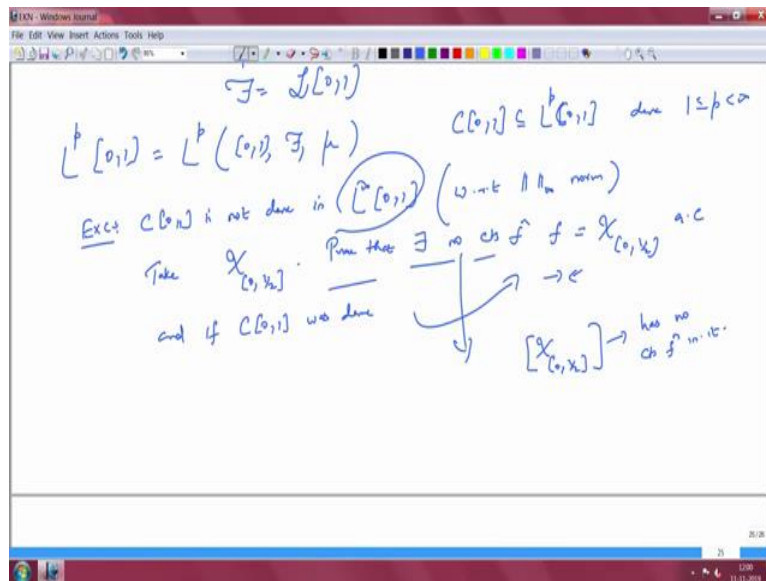 EKN - Windows Journal
File Edit View Insert Actions Tools Help
ℱ = ℒ[0,1]
L^p[0,1] = L^p([0,1], ℱ, μ)
C[0,1] ⊆ L^p[0,1] dense 1≤p<∞
Exc: C[0,1] is not dense in (L^∞[0,1]) (w.r.t || ||_∞ norm)
Take χ_[0,1/2]. Prove that ∃ no cts f^n f = χ_[0,1/2] a.e
and if C[0,1] was dense →←
[χ_[0,1/2]] → has no
cts f^n in it.
25/26
25
12:00
11-11-2019